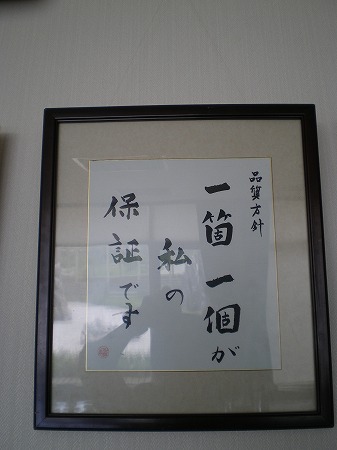 品質方針
一箇一個が
私の
保証です